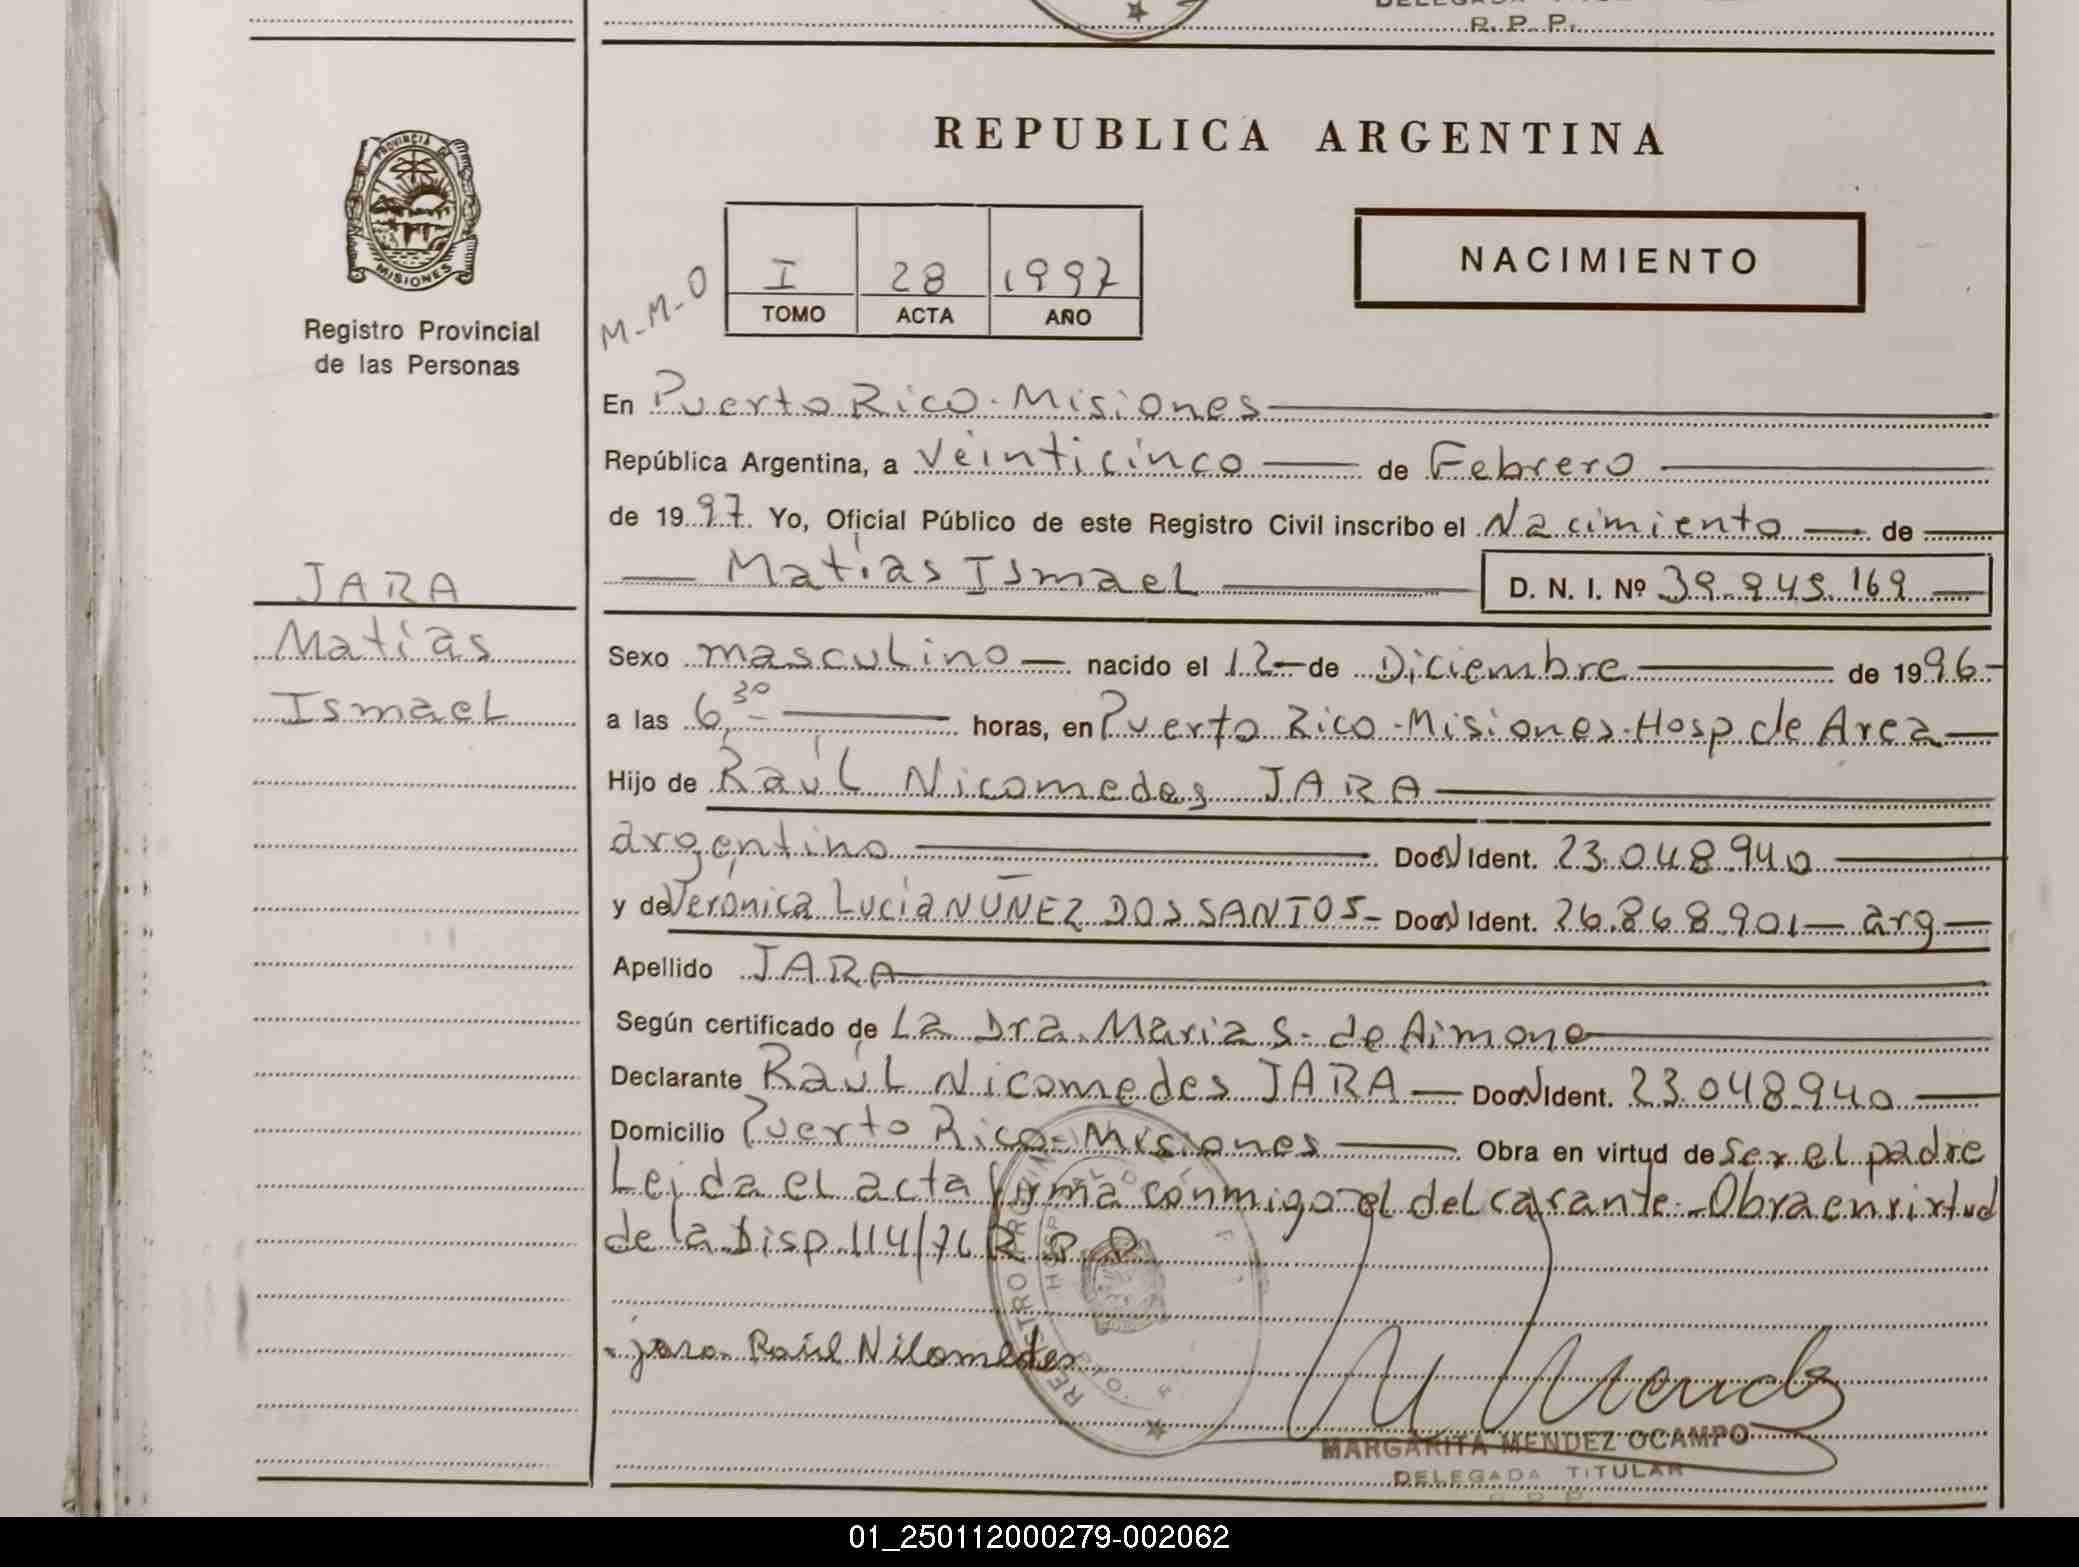 R. P. P.
PROVINCIA DE
MISIONES
Registro Provincial
de las Personas
REPUBLICA ARGENTINA
M-M-O
I 28 1997
TOMO ACTA AÑO
NACIMIENTO
En Puerto Rico - Misiones
República Argentina, a veinticinco de Febrero
de 1997 Yo, Oficial Público de este Registro Civil inscribo el Nacimiento de
Matías Ismael D. N. I. Nº 39.945.169
JARA
Matías
Ismael
Sexo masculino nacido el 12 de Diciembre de 1996
a las 6,30 horas, en Puerto Rico - Misiones - Hosp de Area
Hijo de Raúl Nicomedes JARA
argentino Doc N Ident. 23.048.940
y de Verónica Lucía NUÑEZ DOS SANTOS - Doc N Ident. 26.868.901 - arg
Apellido JARA
Según certificado de La Dra. Maria S. de Aimone
Declarante Raúl Nicomedes JARA Doc N Ident. 23.048.940
Domicilio Puerto Rico - Misiones Obra en virtud de Ser el padre
Leida el acta firma conmigo el delcarante - Obra en virtud
de la Disp 114/76 R.P.P.
jara Raúl Nilomedes
M Mendez
MARGARITA MENDEZ OCAMPO
DELEGADA TITULAR
R. P. P.
01_250112000279-002062